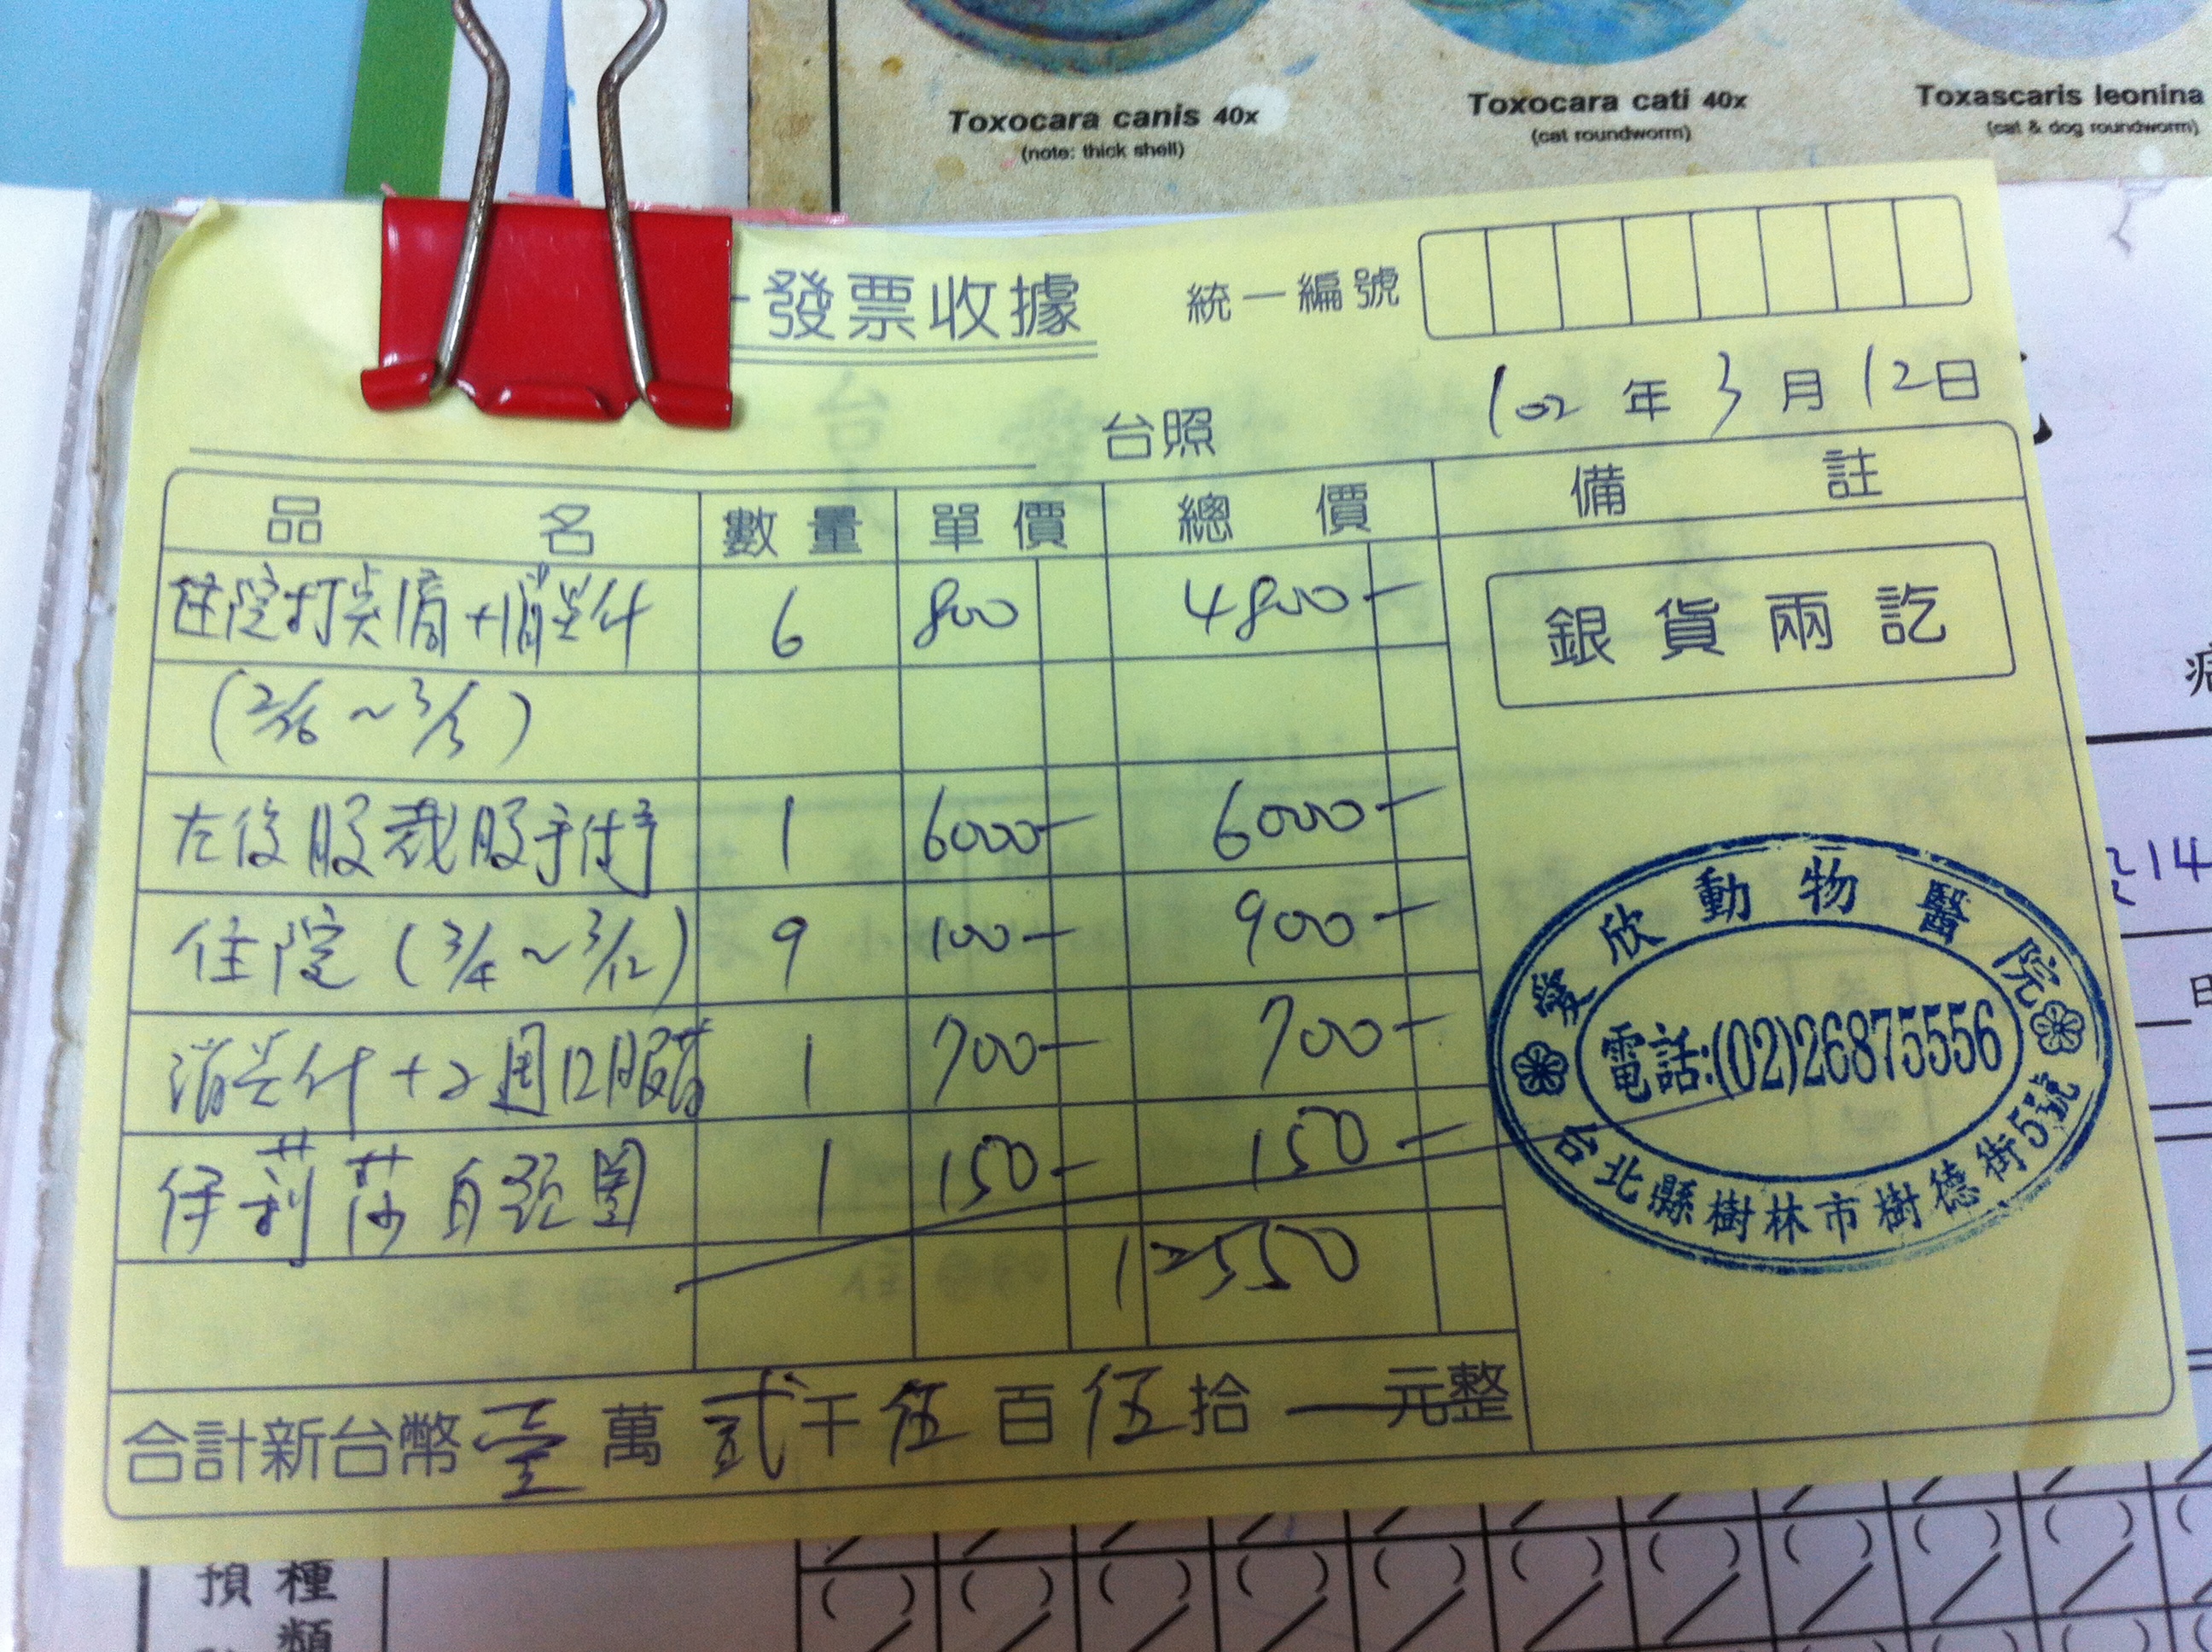 Toxocara canis 40x
(note: thick shell)
Toxocara cati 40x
(cat roundworm)
Toxascaris leonina
(cat & dog roundworm)
一發票收據
統一編號
102年3月12日
台照
品名 數量 單價 總價 備註
住院打 +消炎針 6 800 4800-
(2/26~3/3)
銀貨兩訖
左後肢截肢手術 1 6000- 6000-
住院(3/4~3/12) 9 100- 900-
消炎針+2週口服藥 1 700- 700-
伊莉莎白頸圈 1 150- 150-
12550
合計新台幣壹萬貳千伍百伍拾元整
愛欣動物醫院
電話:(02)26875556
台北縣樹林市樹德街5號
214
日
預種
類